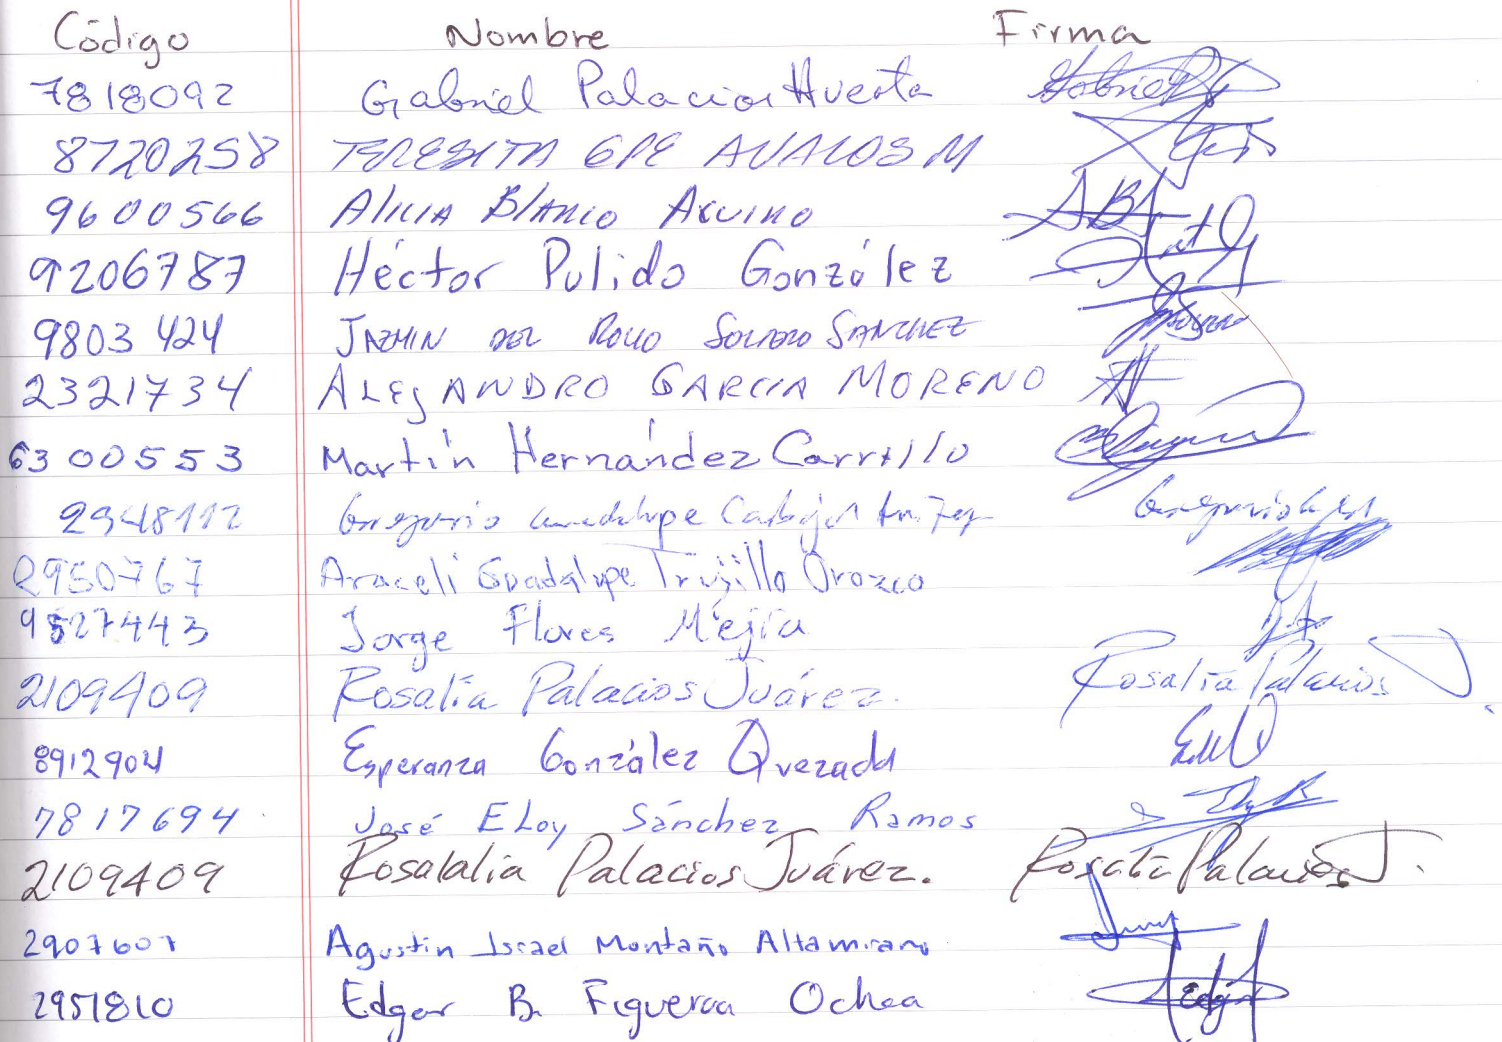 Código Nombre Firma
7818092 Gabriel Palacios Huerta Gabriel
8720258 TERESITA GPE AVALOS M
9600566 Alicia Blanco Aquino ABA
9206787 Héctor Pulido González
9803424 JAZMIN DEL ROCIO SOLTERO SANCHEZ
2321734 ALEJANDRO GARCIA MORENO
6300553 Martín Hernández Carrillo
2948112 Gregorio Guadalupe Carbajal Gregorio
2950767 Araceli Guadalupe Trujillo Orozco
9527443 Jorge Flores Mejía
2109409 Rosalía Palacios Juárez. Rosalía Palacios J.
8912904 Esperanza González Quezada
7817694 José Eloy Sánchez Ramos
2109409 Rosalalia Palacios Juárez. Rosalía Palacios J.
2907607 Agustin Israel Montaño Altamirano
2951810 Edgar B. Figueroa Ochoa Edgar